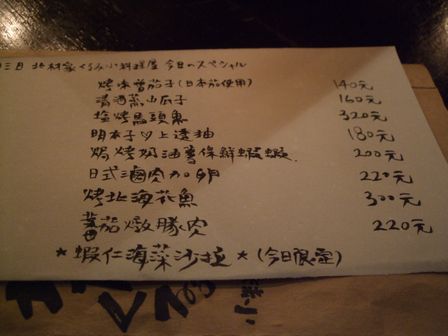 三日 北村家くろみ小料理屋 今日のスペシャル
烤味曾茄子(日本茄使用) 140元
清酒蒸山瓜子 160元
塩烤馬頭魚 320元
明太子山上透抽 180元
焗烤奶油薯條鮮蝦 200元
日式滷肉加卵 220元
烤北海花魚 300元
蕃茄燉豚肉 220元
*蝦仁海菜沙拉*(今日限定)